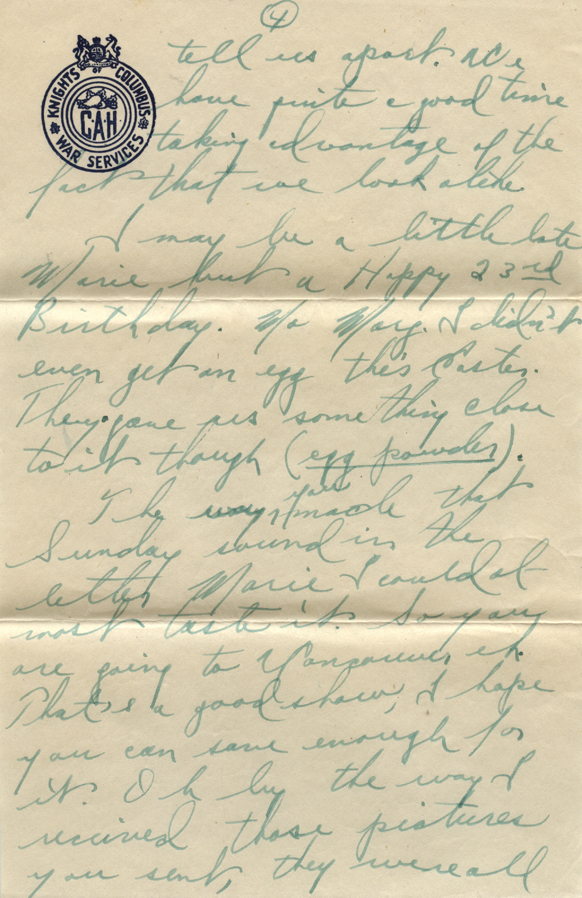 4
KNIGHTS OF COLUMBUS
CAH
WAR SERVICES
tell us apart. We
have quite a good time
taking advantage of the
fact that we look alike
I may be a little late
Marie but a Happy 23rd
Birthday. No Marg. I didn't
even get an egg this Easter.
They gave us something close
to it though (egg powder).
The way you made that
Sunday sound in the
letter Marie I could al
most taste it. So you
are going to Vancouver eh.
That's a good show, I hope
you can save enough for
it. Oh by the way I
recived those pictures
you sent, they were all